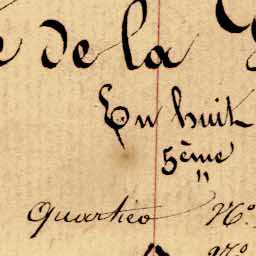 de la
En huit
5ème
"
Quartier N°.
N°.